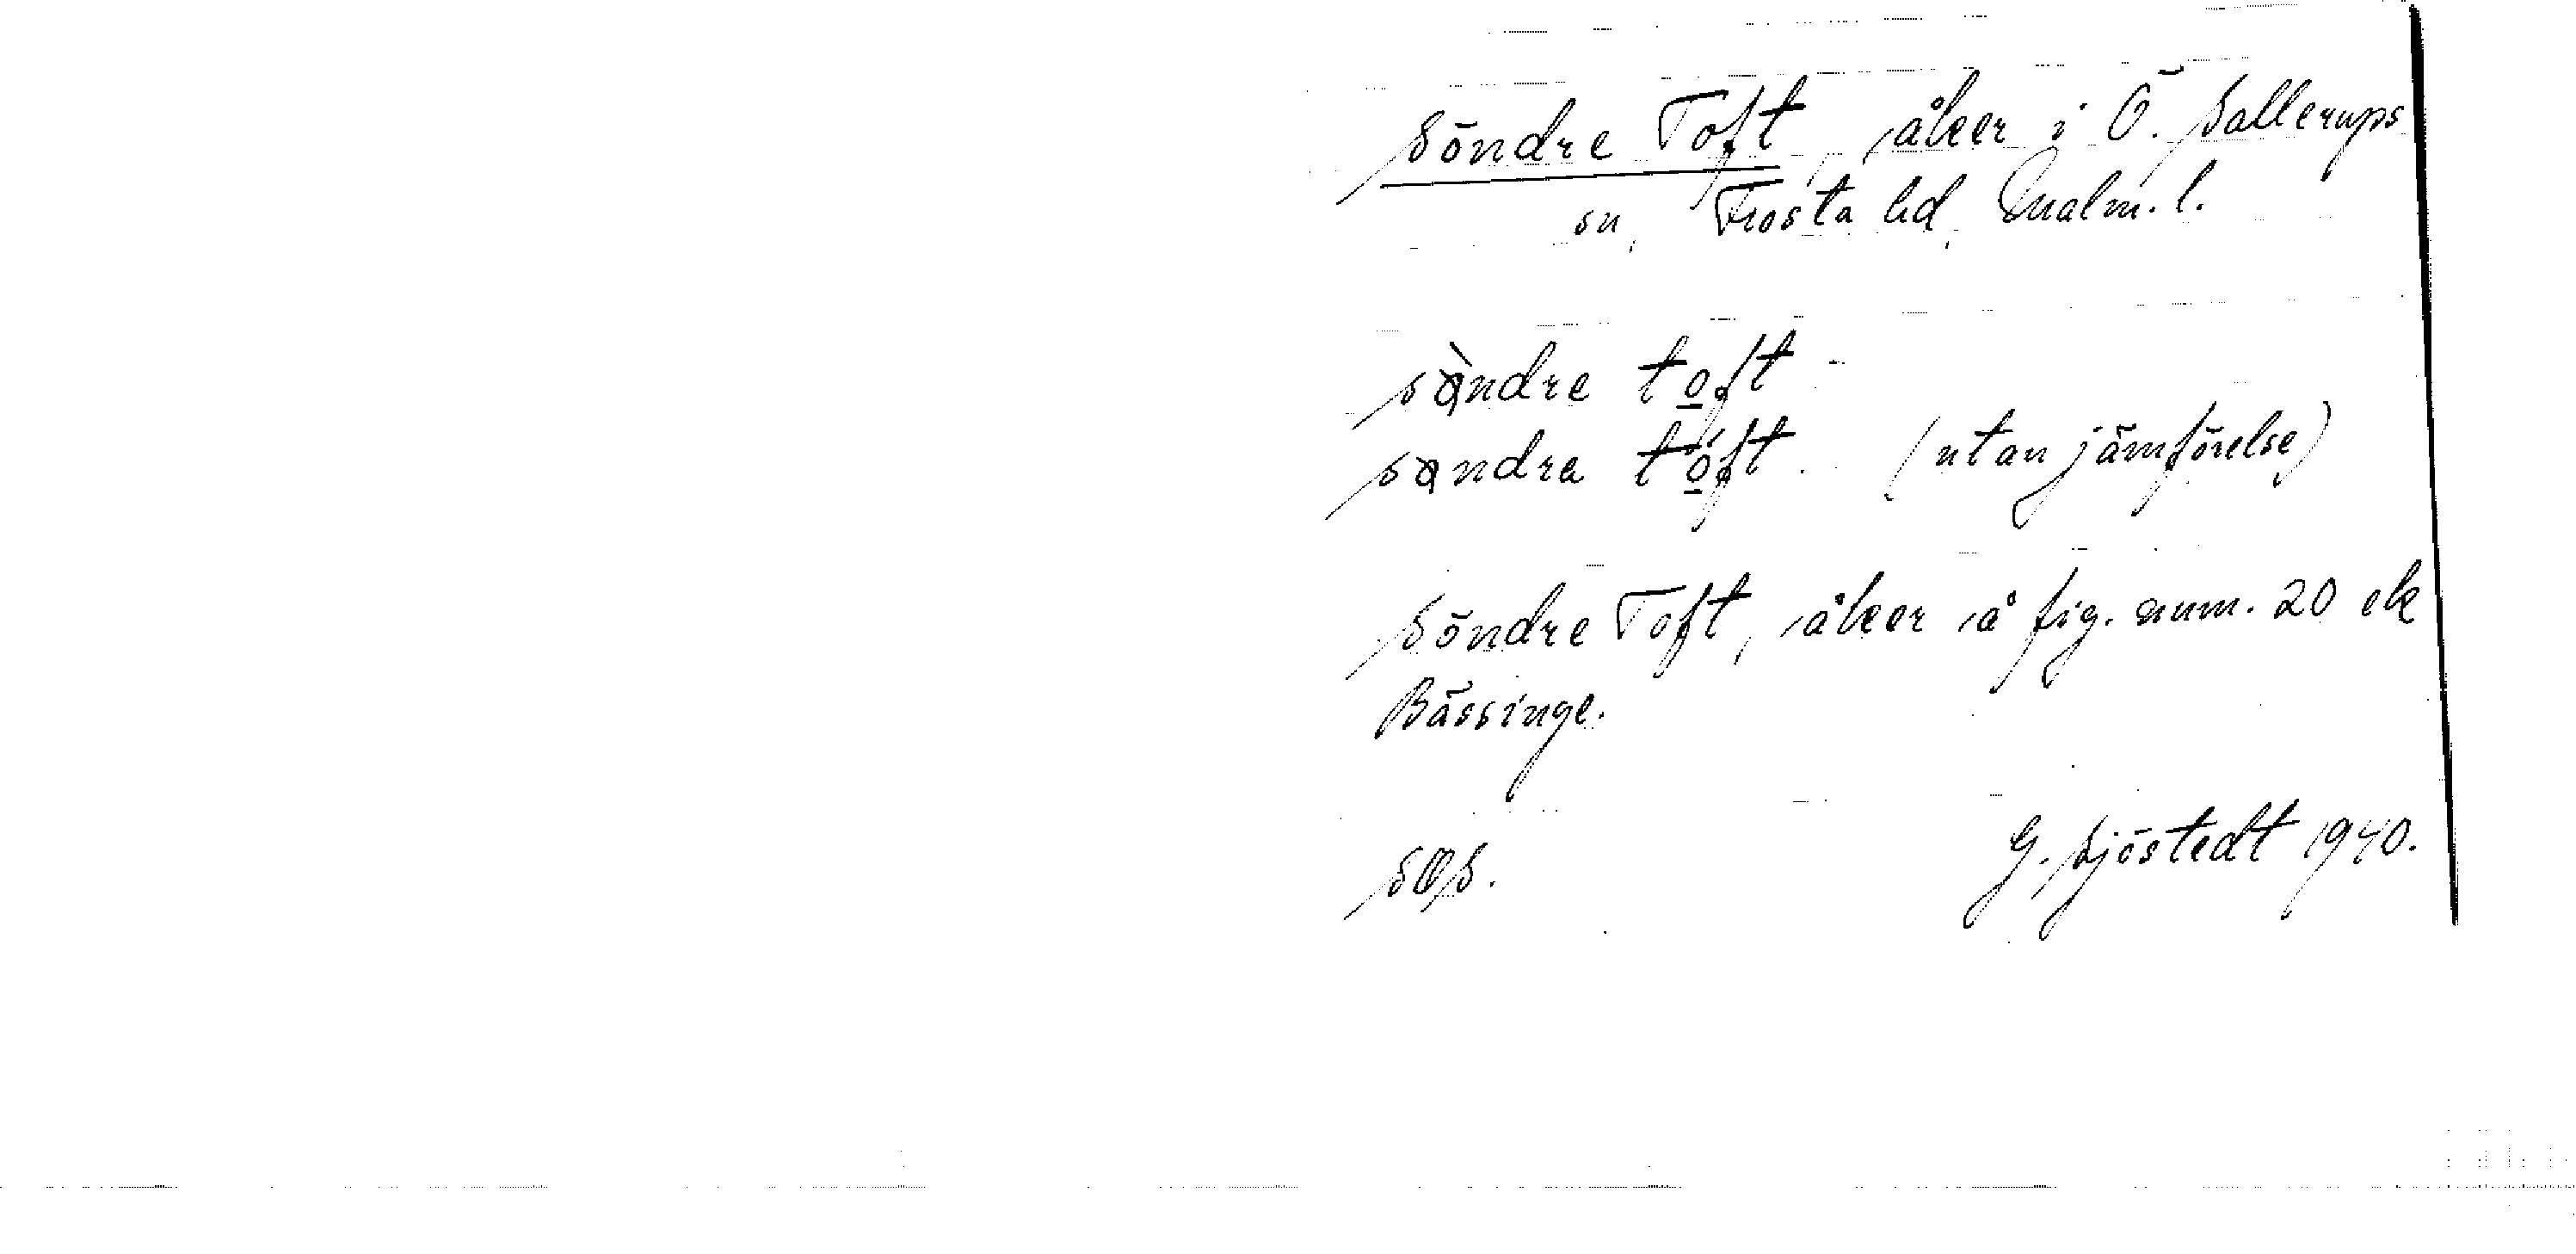 Söndre Toft, åker i Ö. Sallerups
sn, Frosta hd, Malm. l.
sòndre toft
sondra tóft. (utan jämförelse)
Söndre Toft, åker å fig. num. 20 ek
Bässinge.
SOS. G. Sjöstedt 1940.